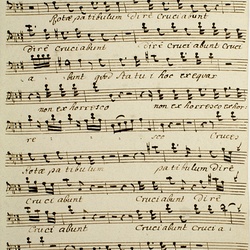 Rotæ patibulum dire Cruciabunt
dire Cruciabunt dire Cruciabunt Cruci
a bunt quod Statui hoc exequar
non exhorresco non exhorresco exhor
re sco Cruces
rotæ patibulum patibulum dire
Cruciabunt Cruciabunt dire
Cruciabunt Cruciabunt Crucia